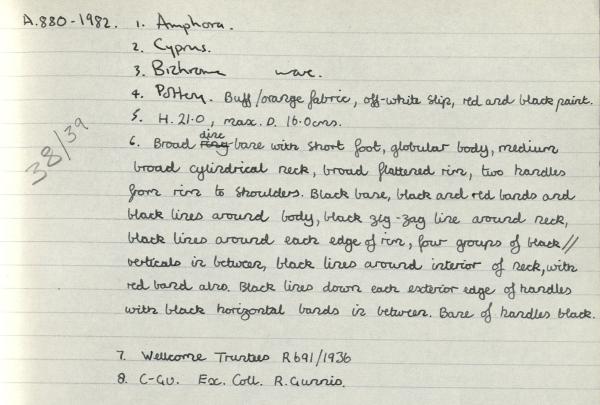 A.880-1982. 1. Amphora.
2. Cyprus.
3. Bichrome ware.
4. Pottery. Buff/orange fabric, off-white slip, red and black paint.
5. H. 21.0, max. D. 16.0cms.
38/39
6. Broad disc base with short foot, globular body, medium
broad cylindrical neck, broad flattened rim, two handles
from rim to shoulders. Black base, black and red bands and
black lines around body, black zig-zag line around neck,
black lines around each edge of rim, four groups of black //
verticals in between, black lines around interior of neck, with
red band also. Black lines down each exterior edge of handles
with black horizontal bands in between. Base of handles black.
7. Wellcome Trustees R691/1936
8. C-GU. Ex. Coll. R. Gunnis.